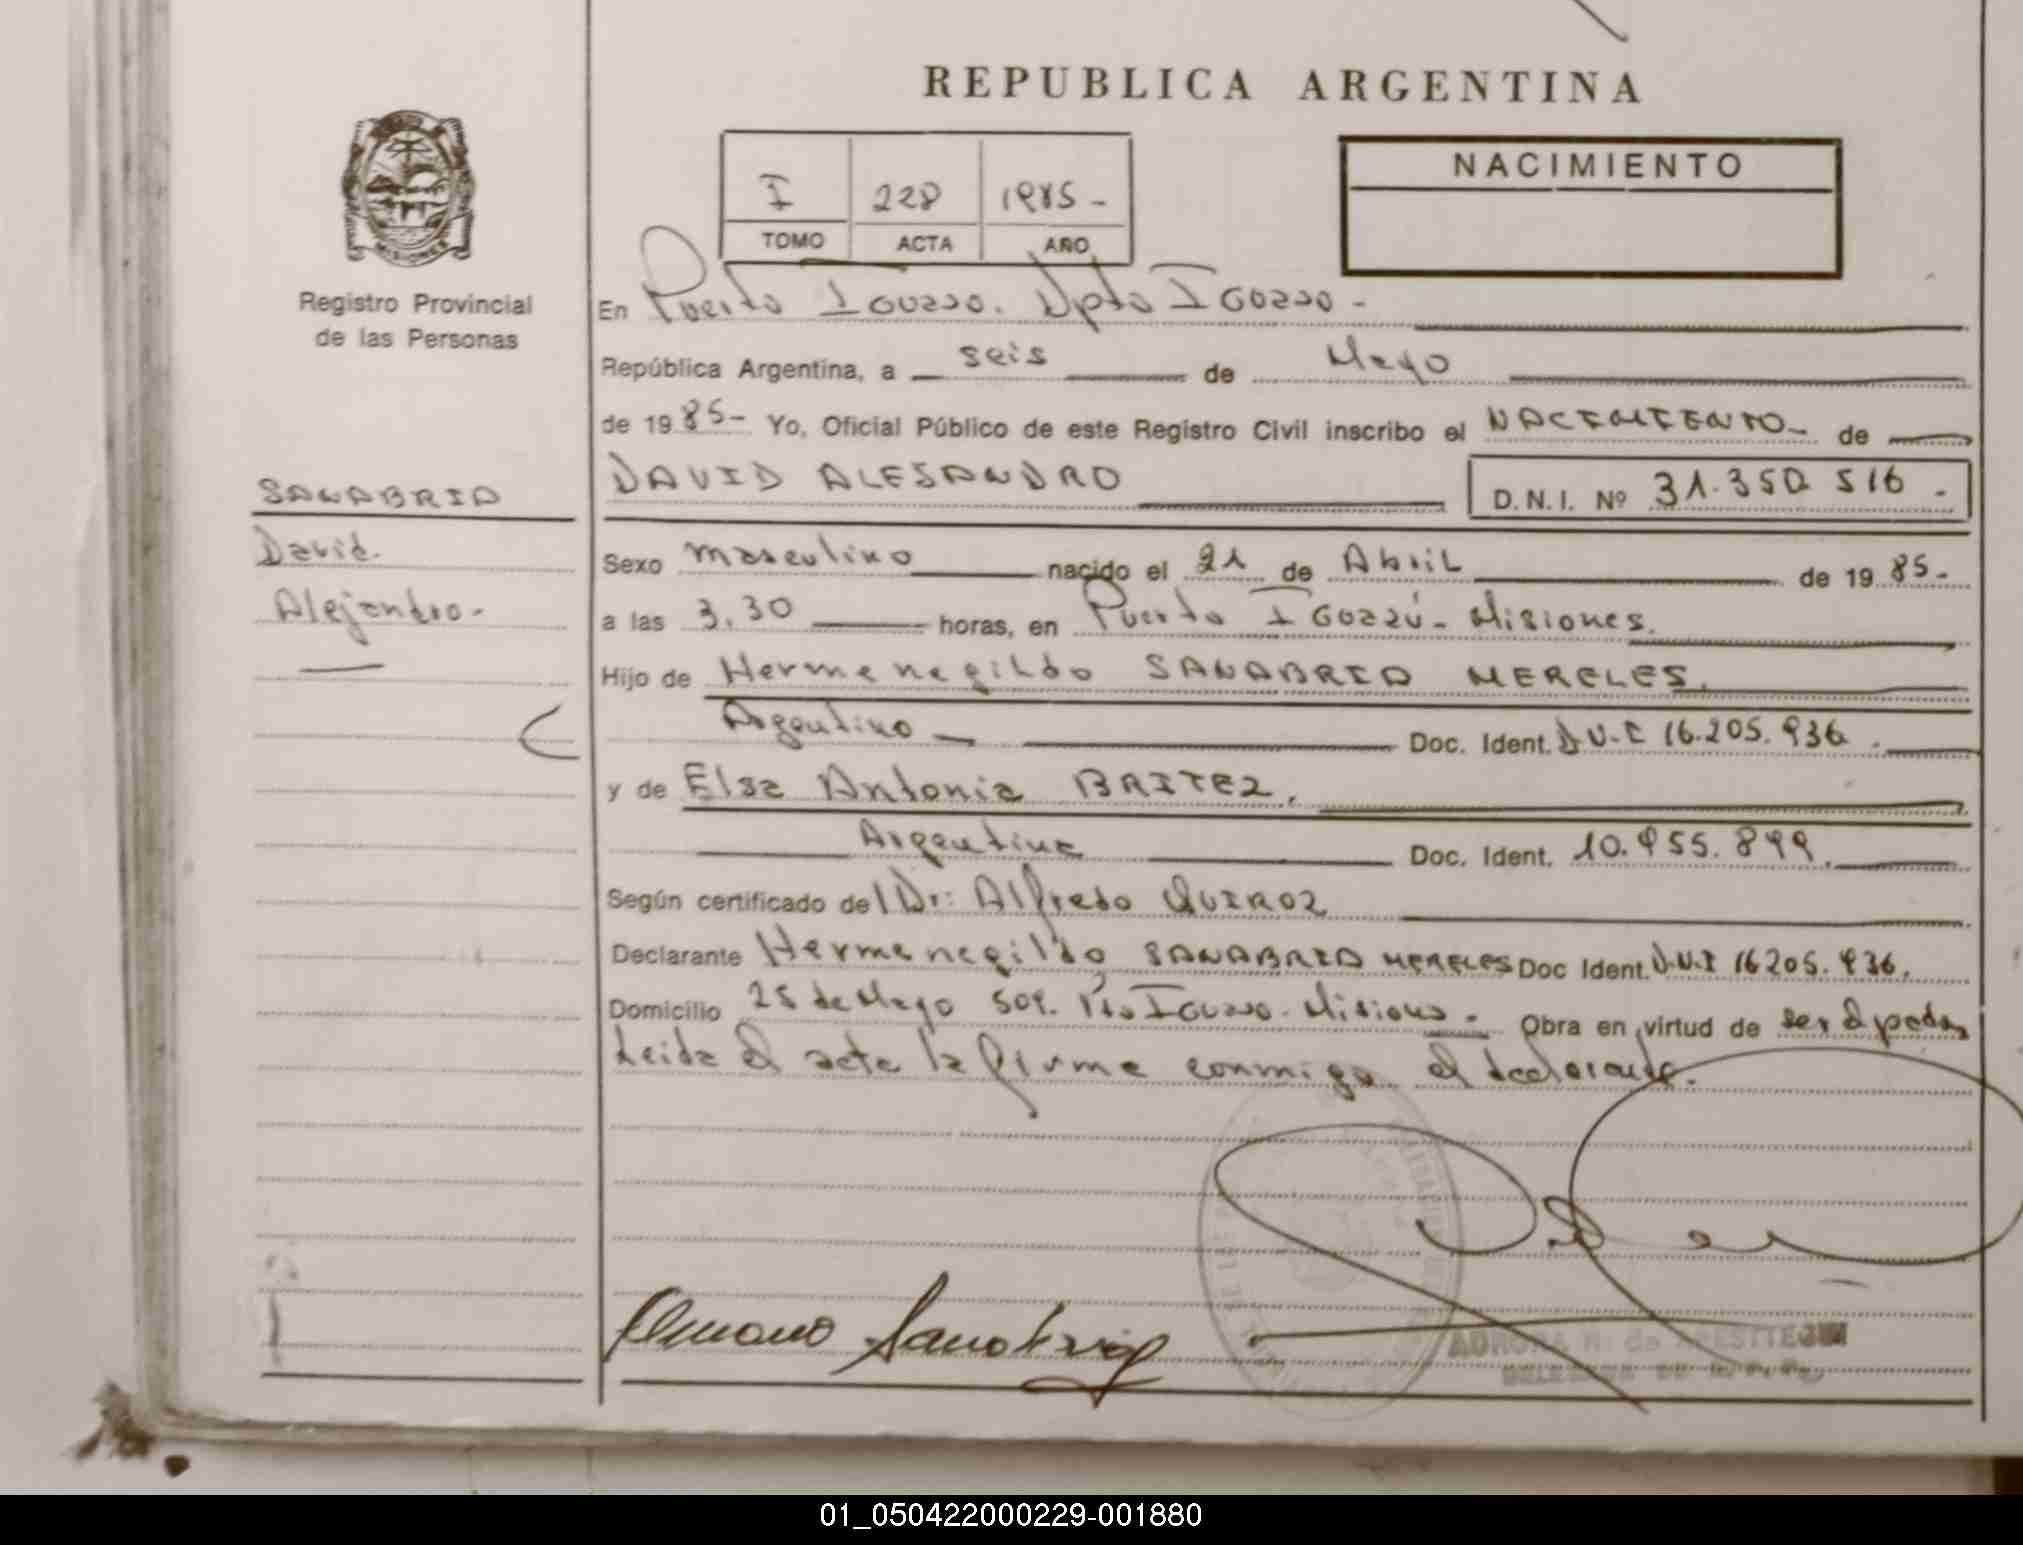 REPUBLICA ARGENTINA
NACIMIENTO
I 228 1985-
TOMO ACTA AÑO
Registro Provincial
de las Personas
MISIONES
En Puerto Iguazú. Dpto Iguazú -
República Argentina, a seis de Mayo
de 1985- Yo, Oficial Público de este Registro Civil inscribo el NACIMIENTO- de
DAVID ALEJANDRO D.N.I. Nº 31.350 516 -
SANABRIA
David.
Alejandro-
Sexo masculino nacido el 21 de Abril de 1985-
a las 3,30 horas, en Puerto Iguazú- Misiones.
Hijo de Hermenegildo SANABRIA MERELES.
Argentino Doc. Ident. D.N.I 16.205.936.
y de Elsa Antonia BRITEZ.
Argentina Doc. Ident. 10.955.899.
Según certificado del Dr: Alfredo QUIROZ
Declarante Hermenegildo SANABRIA MERELES Doc Ident. D.N.I 16205.936.
Domicilio 25 de Mayo 509. Pto Iguazú- Misiones- Obra en virtud de ser el padre
Leida el acta la firma conmigo el declarante.
Sanabria
AURORA N. de
01_050422000229-001880